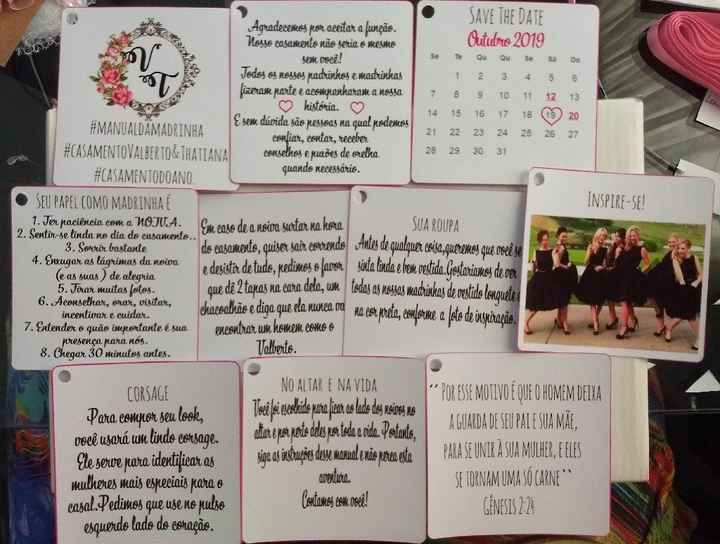 V
T
#MANUALDAMADRINHA
#CASAMENTOVALBERTO&THATIANA
#CASAMENTODOANO
Agradecemos por aceitar a função.
Nosso casamento não seria o mesmo
sem você!
Todos os nossos padrinhos e madrinhas
fizeram parte e acompanharam a nossa
história.
E sem dúvida são pessoas na qual podemos
confiar, contar, receber
conselhos e puxões de orelha
quando necessário.
SAVE THE DATE
Outubro 2019
Se Te Qu Qu Se Sa Do
1 2 3 4 5 6
7 8 9 10 11 12 13
14 15 16 17 18 19 20
21 22 23 24 25 26 27
28 29 30 31
SEU PAPEL COMO MADRINHA É
1. Ter paciência com a NOIVA.
2. Sentir-se linda no dia do casamento..
3. Sorrir bastante
4. Enxugar as lágrimas da noiva
(e as suas ) de alegria
5. Tirar muitas fotos.
6. Aconselhar, orar, visitar,
incentivar e cuidar.
7. Entender o quão importante é sua
presença para nós.
8. Chegar 30 minutos antes.
Em caso de a noiva surtar na hora
do casamento, quiser sair correndo
e desistir de tudo, pedimos o favor
que dê 2 tapas na cara dela, um
chacoalhão e diga que ela nunca va
encontrar um homem como o
Valberto.
SUA ROUPA
Antes de qualquer coisa,queremos que você se
sinta linda e bem vestida.Gostaríamos de ver
todas as nossas madrinhas de vestido longuete
na cor preta, conforme a foto de inspiração.
INSPIRE-SE!
CORSAGE
Para compor seu look,
você usará um lindo corsage.
Ele serve para identificar as
mulheres mais especiais para o
casal.Pedimos que use no pulso
esquerdo lado do coração.
NO ALTAR E NA VIDA
Você foi escolhido para ficar ao lado dos noivos no
altar e por perto deles por toda a vida. Portanto,
siga as instruções desse manual e não perca esta
aventura.
Contamos com você!
``POR ESSE MOTIVO É QUE O HOMEM DEIXA
A GUARDA DE SEU PAI E SUA MÃE,
PARA SE UNIR À SUA MULHER, E ELES
SE TORNAM UMA SÓ CARNE``
GÊNESIS 2:24